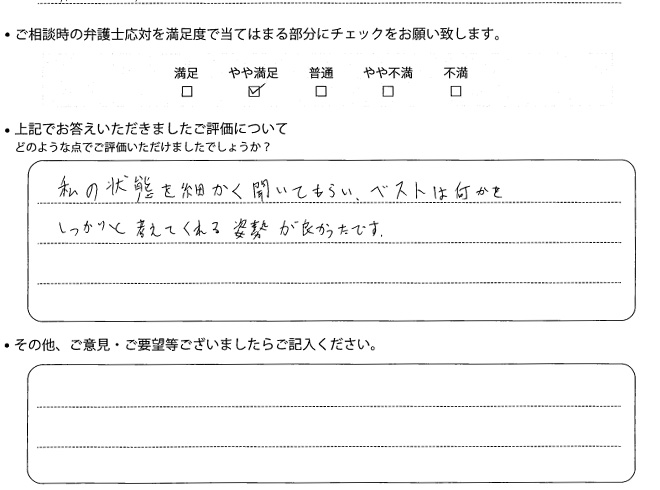 ・ご相談時の弁護士応対を満足度で当てはまる部分にチェックをお願い致します。
満足 やや満足 普通 やや不満 不満
□ ☑ □ □ □
・上記でお答えいただきましたご評価について
どのような点でご評価いただけましたでしょうか？
私の状態を細かく聞いてもらい、ベストは何かを
しっかりと考えてくれる姿勢が良かったです。
・その他、ご意見・ご要望等ございましたらご記入ください。